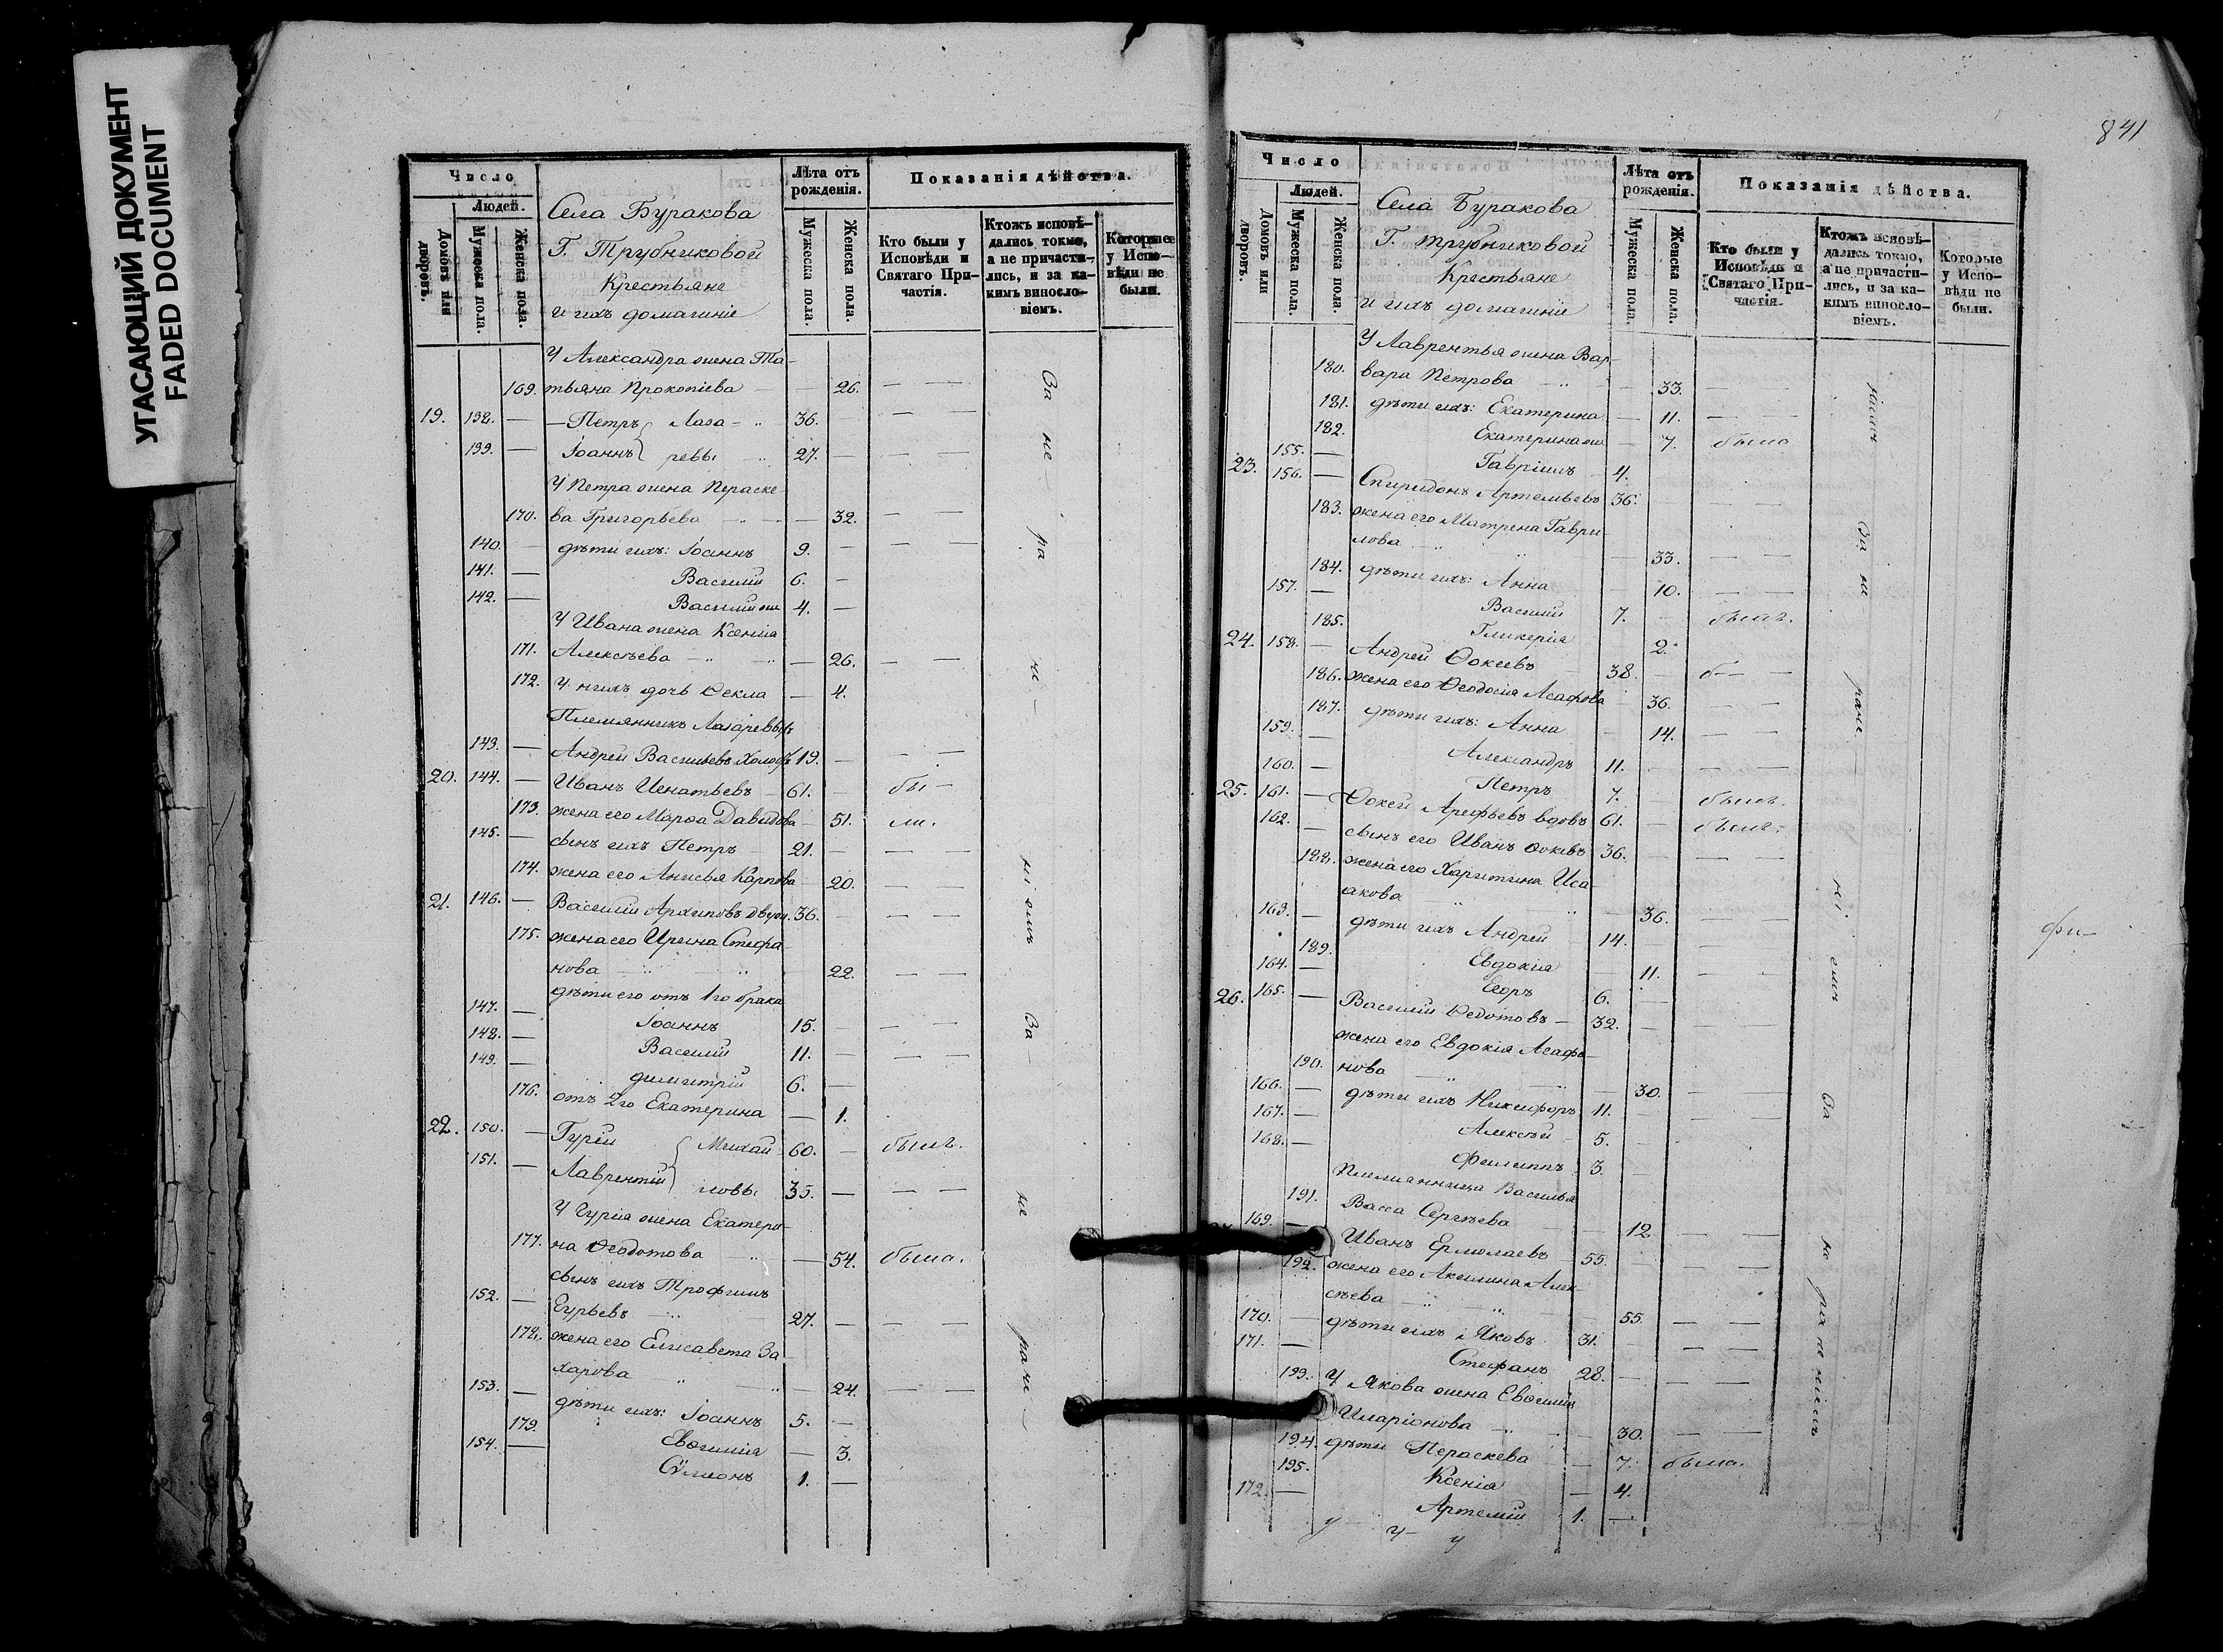 УГАСАЮЩИЙ ДОКУМЕНТ
FADED DOCUMENT
Число
Людей.
Домовъ или дворовъ.
Мужеска пола.
Женска пола.
Села Буракова
Г. Трубниковой
Крестьяне
и ихъ домашніе
Лѣта отъ рожденія.
Мужеска пола.
Женска пола.
Показанія дѣйства.
Кто были у Исповѣди и Святаго Причастія.
Ктожъ исповѣдались токмо, а не причастились, и за какимъ винословіемъ.
Которые у Исповѣди не были.
У Александра жена Та-
169. тьяна Прокопіева — — 26. — —
19. 138. — — Петръ Лаза- 36. — —
139. — Іоаннъ ревы 27. — — —
У Петра жена Пераске-
170. ва Григорьева — — 32. — —
140. — дѣти ихъ: Іоаннъ 9. — — —
141. — Василій 6. —
142. — Василій же 4. —
У Ивана жена Ксенія
171. Алексѣева — — 26. — —
172. У нихъ дочь Ѳекла — 4.
Племянникъ Лазаревыхъ
143. — Андрей Васильевъ Холос. 19. — — —
20. 144. — Иванъ Игнатьевъ — 61. — бы-
173. жена его Марѳа Давидова — 51. ли.
145. — сынъ ихъ Петръ 21. — — —
174. жена его Анисья Карпова — 20. — —
21. 146. — Василій Архиповъ 36. — — —
175. жена его Ирина Стефа-
нова — 22. — —
дѣти его отъ 1го брака
147. — Іоаннъ 15. — —
148. — Василій 11. — — —
149. — Димитрій 6. —
176. отъ 2го Екатерина — 1.
22. 150. — Гурій Михай- 60. — былъ.
151. — Лаврентій ловы 35. — — —
У Гурія жена Екатери-
177. на Ѳеодотова — 54. была.
сынъ ихъ Трофимъ
152. — Гурьевъ 27. — — —
178. жена его Елисавета За-
харова — 24. — —
153. — дѣти ихъ: Іоаннъ 5. —
179. Евѳимія — 3.
154. — Сѵмеонъ 1. —
За не- ра че- ніемъ За- не раче-
841
Число
Людей.
Домовъ или дворовъ.
Мужеска пола.
Женска пола.
Села Буракова
Г. Трубниковой
Крестьяне
и ихъ домашніе
Лѣта отъ рожденія.
Мужеска пола.
Женска пола.
Показанія дѣйства.
Кто были у Исповѣди и Святаго Причастія.
Ктожъ исповѣдались токмо, а не причастились, и за какимъ винословіемъ.
Которые у Исповѣди не были.
У Лаврентья жена Вар-
180. вара Петрова — — 33. — —
181. дѣти ихъ: Екатерина — 11. — —
182. Екатерина же — 7. была
155. — Гавріилъ 4.
23. 156. — Спиридонъ Артемьевъ 36. — —
183. жена его Матрена Гаври-
лова — 33. — —
184. дѣти ихъ: Анна — 10. — —
157. — Василій 7. — былъ.
185. Гликерія 2.
24. 158. — Андрей Ѳокеевъ 38. — б— —
186. жена его Ѳеодосія Агафова 36. — —
187. дѣти ихъ: Анна — 14. — —
159. — Александръ 11. — — —
160. — Петръ 7. — былъ.
25. 161. — Ѳокей Арефьевъ вдовъ 61. — былъ.
162. — сынъ его Иванъ Ѳокевъ 36. — — —
188. жена его Харитина Иса-
акова — 36. — —
163. — дѣти ихъ Андрей 14. — — —
189. Евдокія — 11. — —
164. — Егоръ 6. —
26. 165. — Василій Ѳедотовъ — 32. — — —
жена его Евдокія Агафо-
190. нова — 30. — —
166. — дѣти ихъ Никифоръ 11. — — —
167. — Алексѣй 5. —
168. — Филиппъ 3. —
Племянница Василья
191. Васса Сергѣева — 12. — —
169. — Иванъ Ермолаевъ — 55. — — —
192. жена его Акилина Алек-
сѣева — 55. — —
170. — дѣти ихъ Яковъ 31. — — —
171. — Стефанъ 28. — — —
193. У Якова жена Евѳимія
Иларіонова — 30. — —
194. дѣти Пераскева — 7. была.
195. Ксенія — 4.
172. — Артемій 1. —
ніемъ За не раче- ні- емъ За не ра че ніемъ